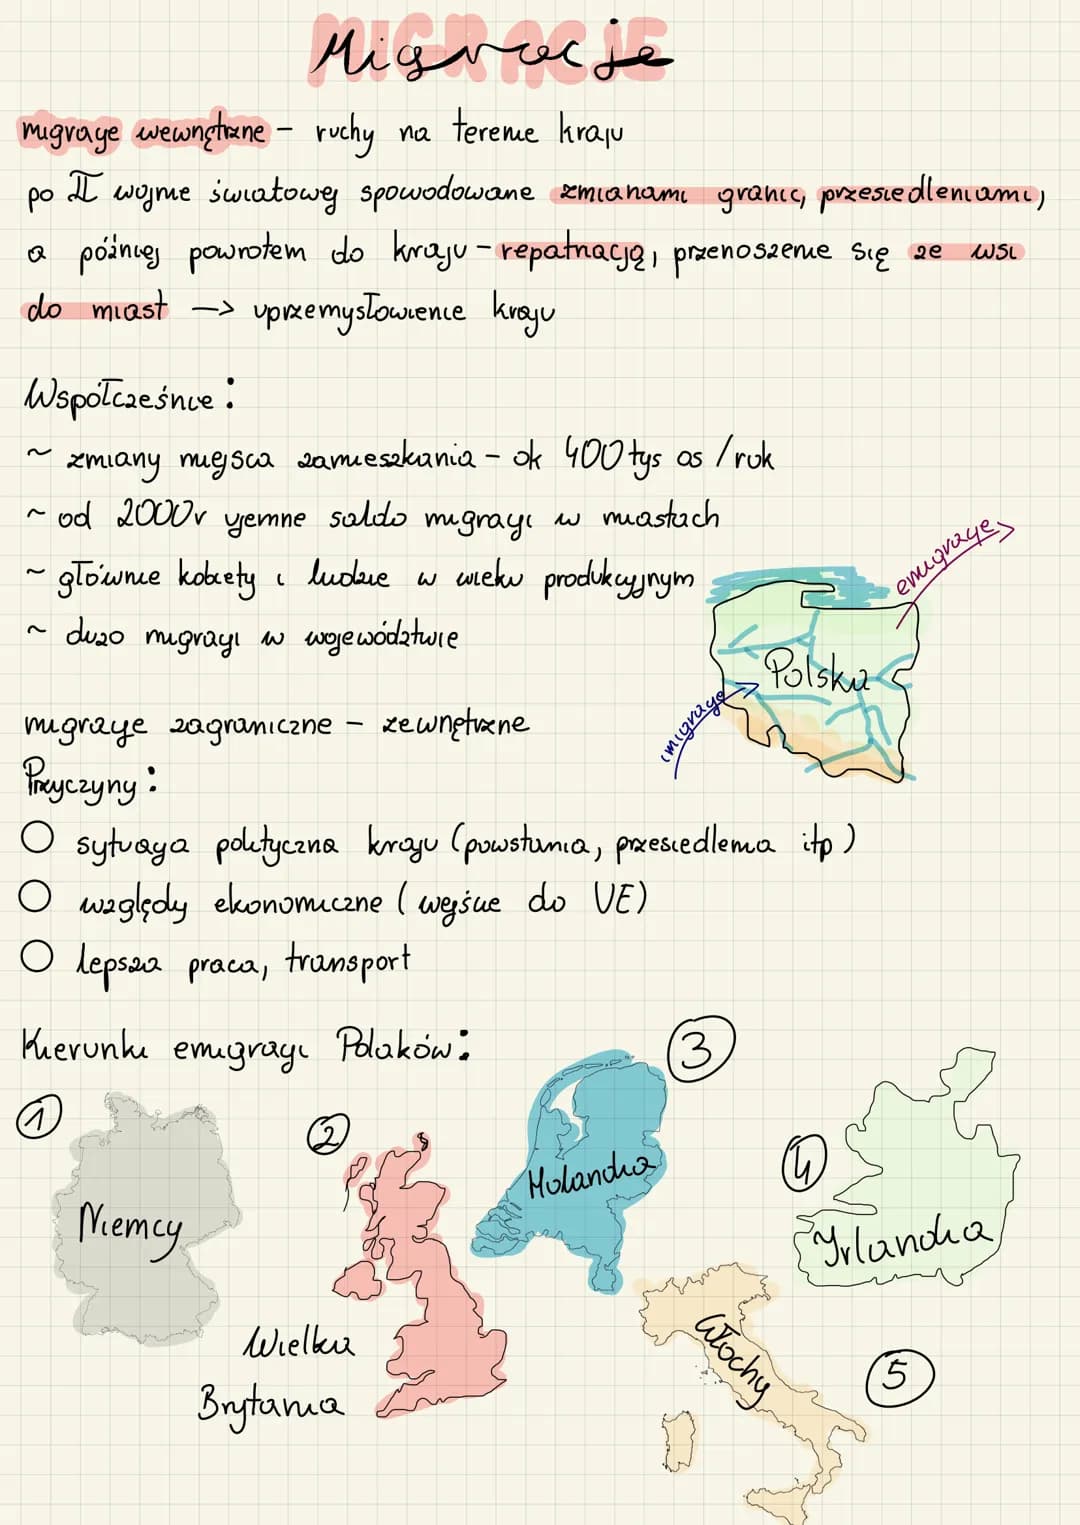 Migracje
migracje wewnętrzne - ruchy na terenie kraju
po II wojnie światowej spowodowane zmianami granic, przesiedleniami,
a później powrotem do kraju - repatriacją, przenoszenie się ze wsi
do miast -> uprzemysłowienie kraju
Współcześnie:
~ zmiany miejsca zamieszkania - ok 400 tys os /rok
~ od 2000r ujemne saldo migracji w miastach
~ głównie kobiety i ludzie w wieku produkcyjnym
~ dużo migracji w województwie
emigracje
Polska
imigracje
migracje zagraniczne - zewnętrzne
Przyczyny:
○ sytuacja polityczna kraju (powstania, przesiedlenia itp)
○ względy ekonomiczne (wejście do UE)
○ lepsza praca, transport
Kierunki emigracji Polaków:
1 Niemcy
2 Wielka
Brytania
3 Holandia
4 Irlandia
5 Włochy